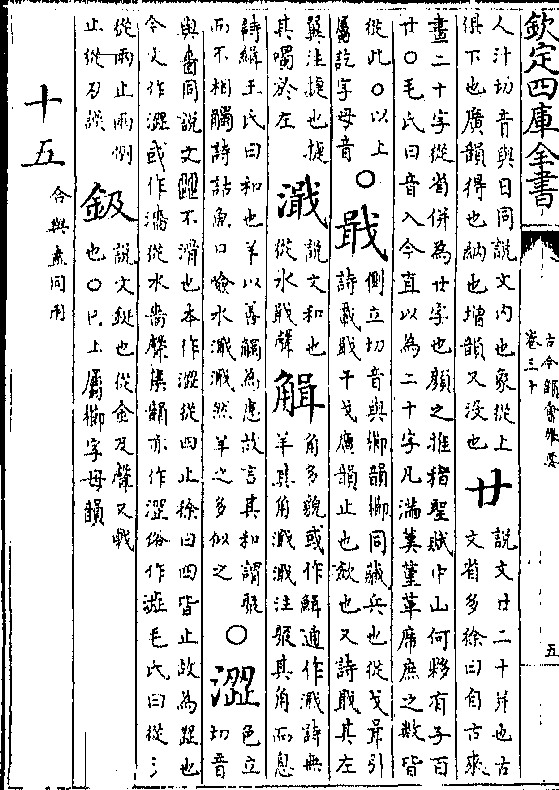 欽定四庫全書
古今韻會舉要
卷三十
五
人汁切音與日同說文内也象從上
俱下也廣韻得也納也增韻又没也
廿
說文廿二十并也古
文省多徐曰自古來
書二十字從省併為廿字也顔之推稽聖賦中山何夥有子百
廿○毛氏曰音入今直以為二十字凡滿堇革席庶之數皆
從此○以上
屬訖字母音
○戢
側立切音與櫛韻櫛同藏兵也從戈咠引
詩載戢干戈廣韻止也歛也又詩戢其左
翼注揵也揵
其噣於左
濈
說文和也
從水戢聲
角多貌或作通作濈詩無
羊其角濈濈注聚其角而息
詩緝王氏曰和也羊以善觸為患故言其和謂聚
而不相觸詩詁魚口噞水濈濈然羊之多似之
○澀
色立
切音
與嗇同說文歰不滑也本作澀從四止徐曰四皆止故為歰也
今文作澀或作濇從水嗇聲集韻亦作澀俗作澁毛氏曰從氵
從兩止兩倒
止從刃誤
鈒
說文鋋也從金及聲又戟
也○已上屬櫛字母韻
十五
合與盍同用